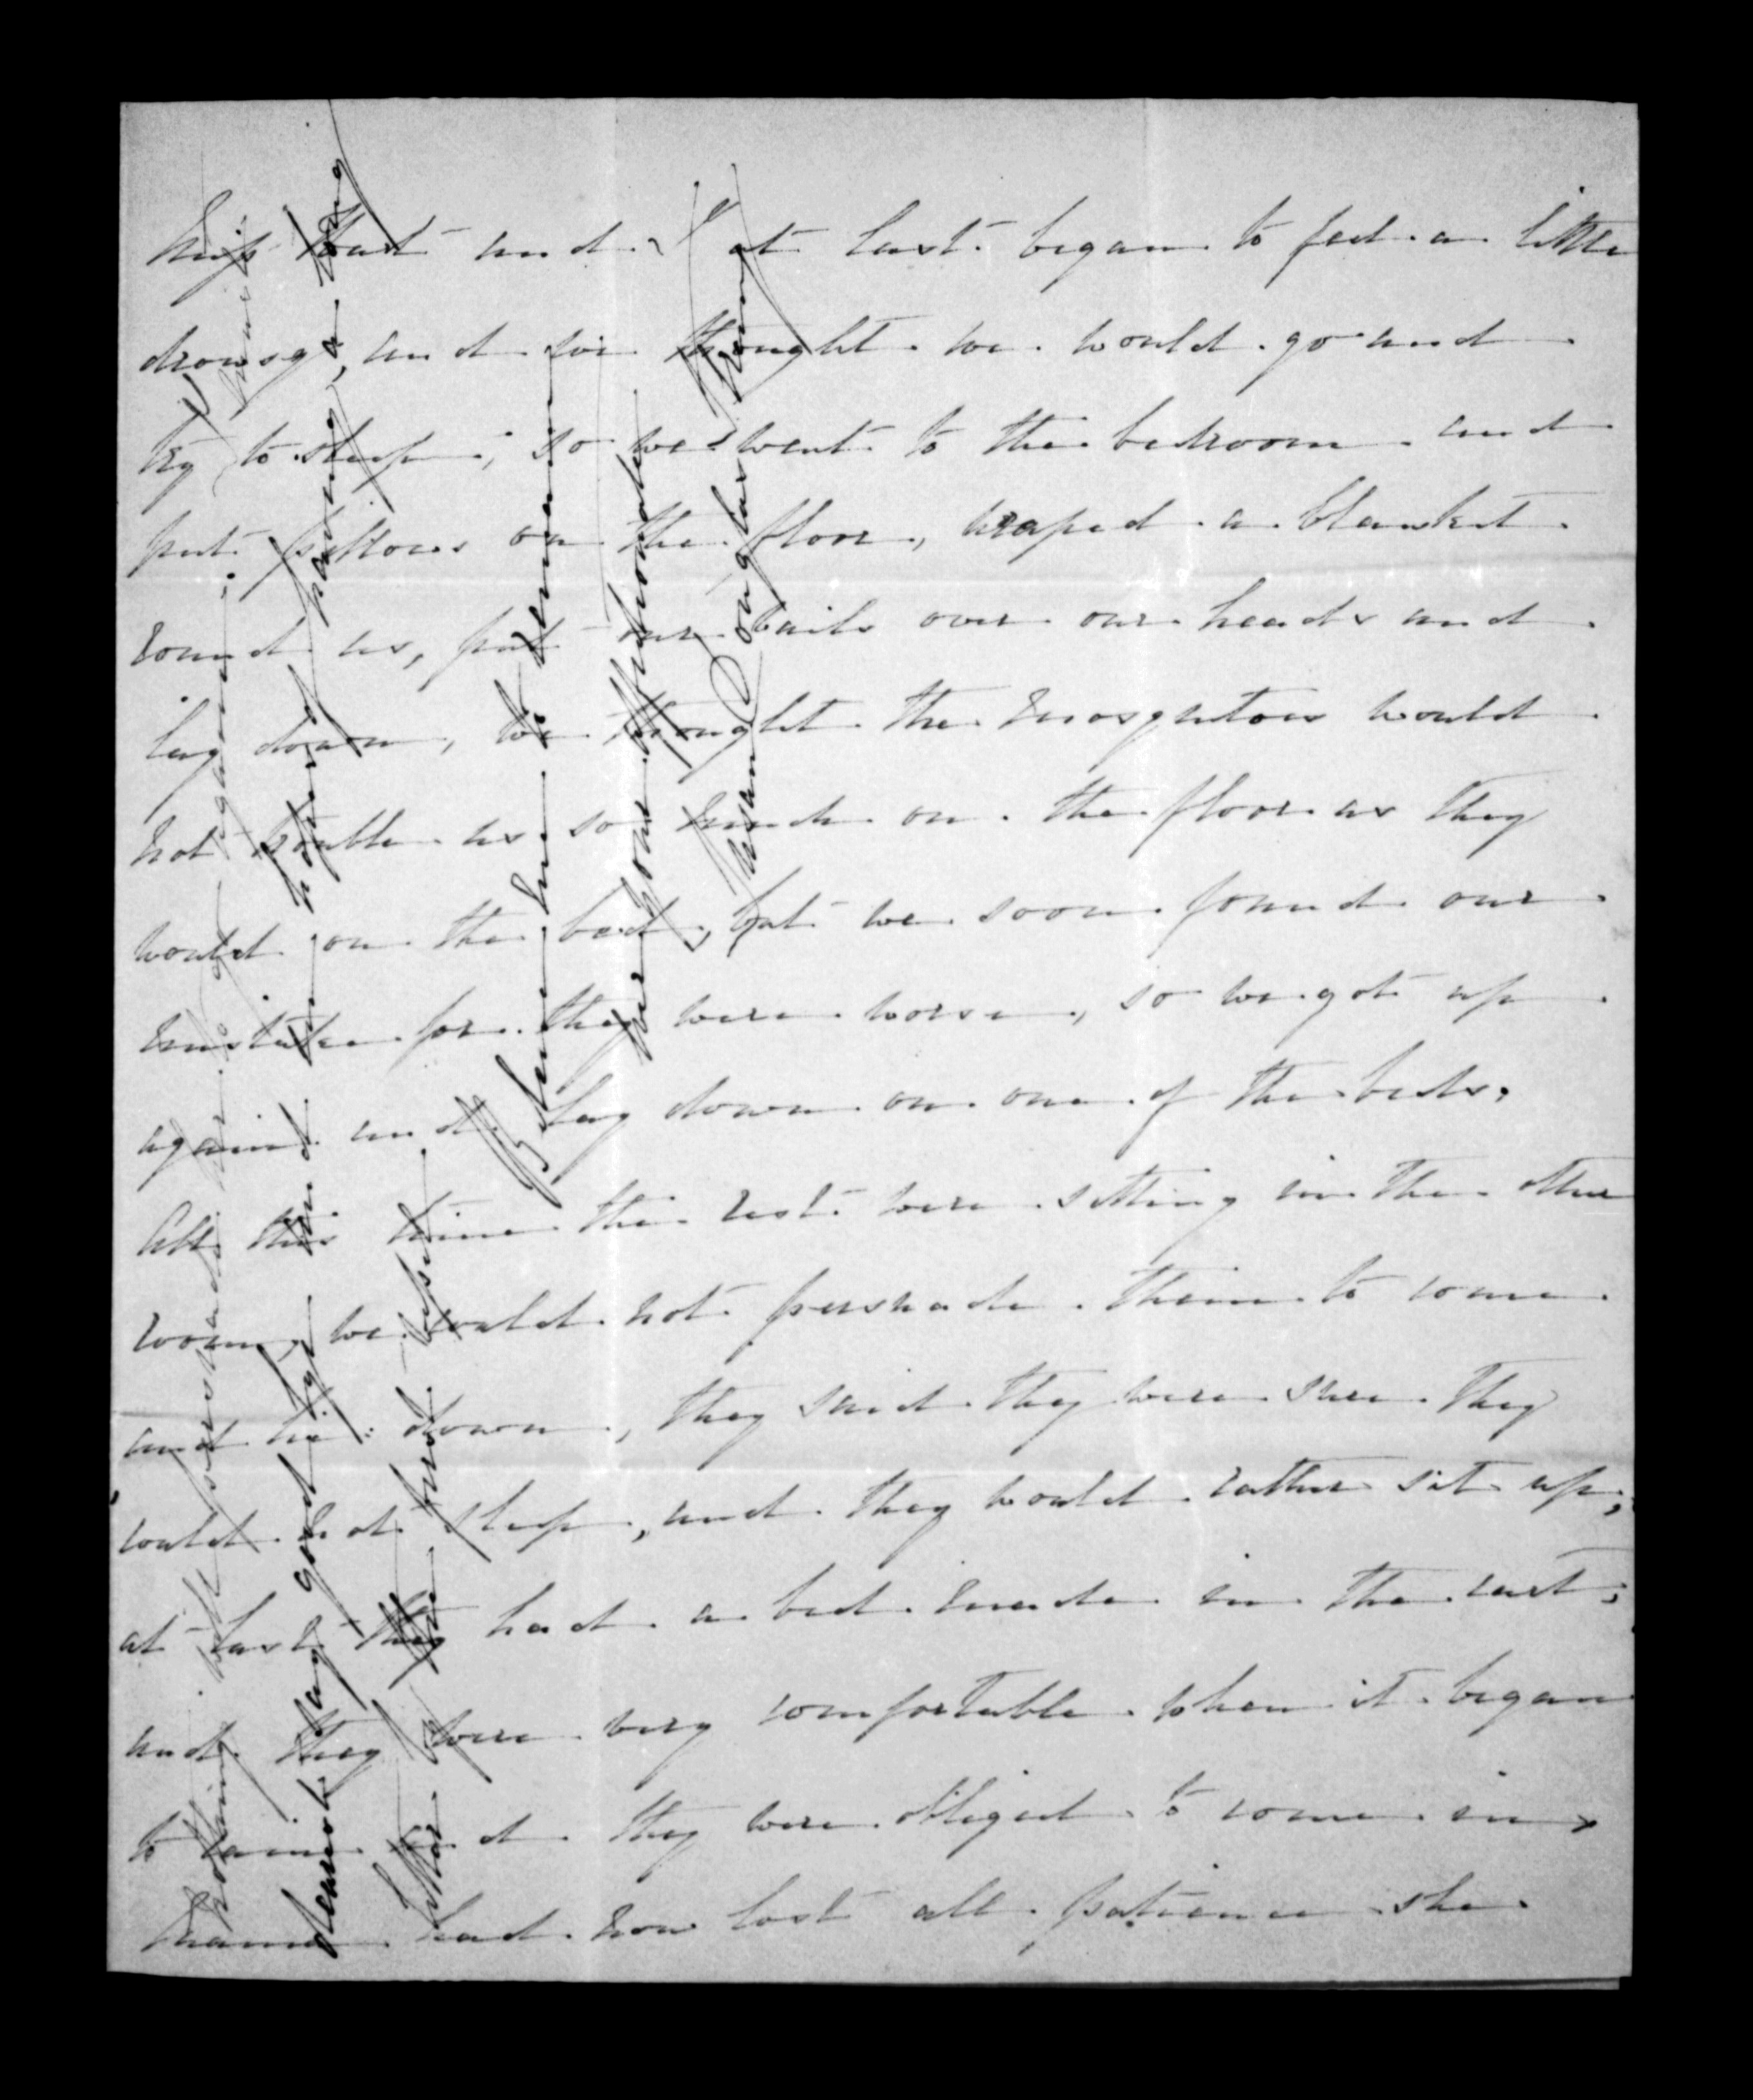 Miss Hart and I at last began to feel a little
drowsy, and we thought we would go and
try to sleep; so we went to the bedroom and
put pillows on the floor, wraped a blanket
round us, put our vails over our heads and
lay down, we thought the mosquitoes would
not trouble us so much on the floor as they
would on the bed, but we soon found our
mistake for they were worse, so we got up
again and lay down on one of the beds.
All this time the rest were sitting in the other
room, we could not persuade them to come
and lie down, they said they were sure they
could not sleep, and they would rather sit up;
at last they had a bed made in the cart;
and they were very comfortable when it began
to rain and they were obliged to come in,
Mama had now lost all patience she
nothing will persuade again
dearest good
Believe me
your own affectionate
Susan Douglas